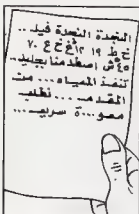 النجدة النجدة فيلـ..
خ ط ١٩ ١٢ خ ع ٧٠
٤٥ ش اصطدمنا بجليد..
تنفذ المياه... مت
المقدمـ... نطلب
معو...ة سريعـ...